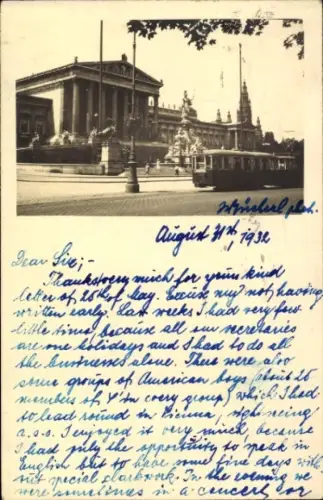 August 31th, 1932
Dear Sir;-
Thanks very much for your kind
letter of 26th of May. Excuse my not having
written early. Last weeks I had very few
little time, because all our secretaries
are one holidays and I had to do all
the businesses alone. There were also
some groups of American boys (about 25
members of Y'in every group, which I had
to lead round in Vienna, sight seeing
a.s.o. I enjoyed it very much, because
I had july the opportunity to speak in
English but to have some fine days with
not special clarkwork. In the evening we
were sometimes in a concert or